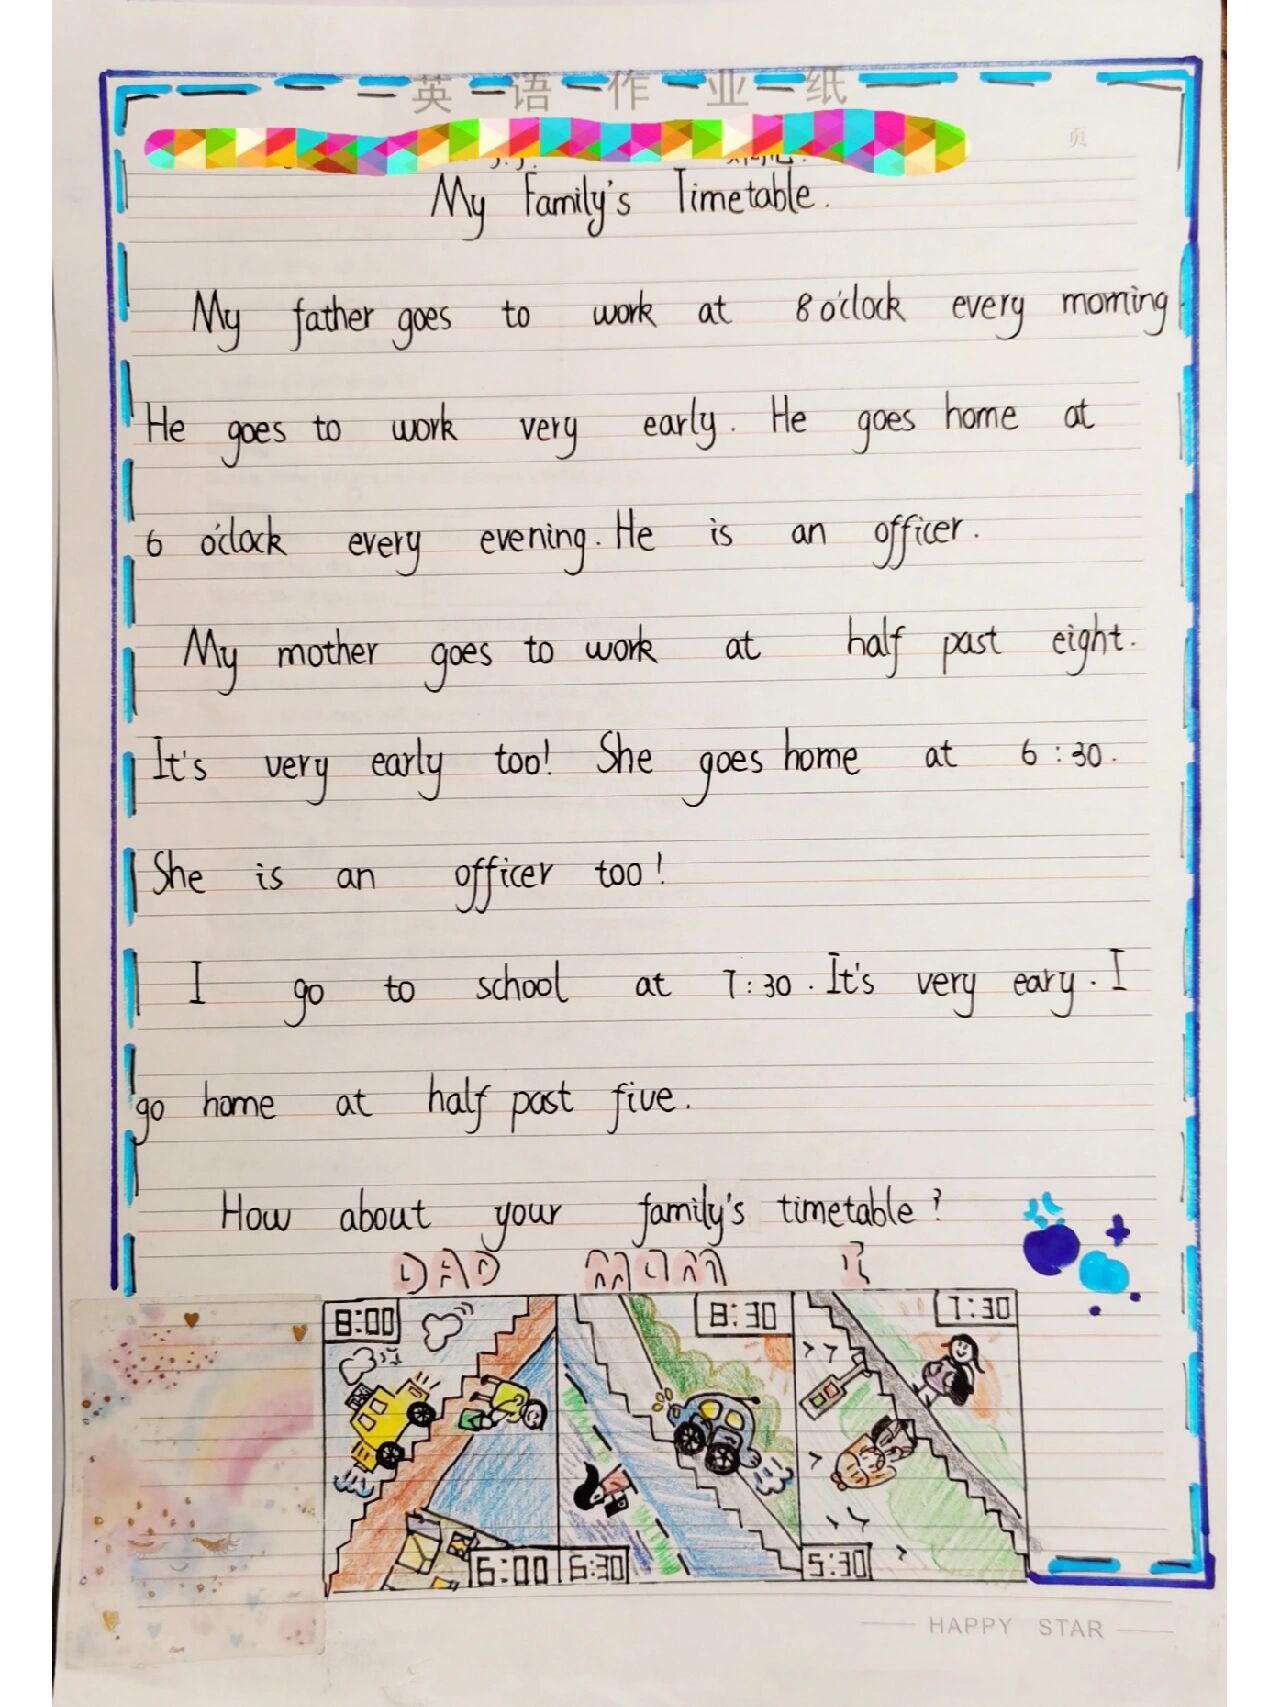 英语作业纸
页
My Family's Timetable.
My father goes to work at 8 o'clock every morning
He goes to work very early. He goes home at
6 o'clock every evening. He is an officer.
My mother goes to work at half past eight.
It's very early too! She goes home at 6:30.
She is an officer too!
I go to school at 7:30. It's very eary. I
go home at half past five.
How about your family's timetable?
DAD MOM I
8:00 8:30 7:30
6:00 6:30 5:30
HAPPY STAR